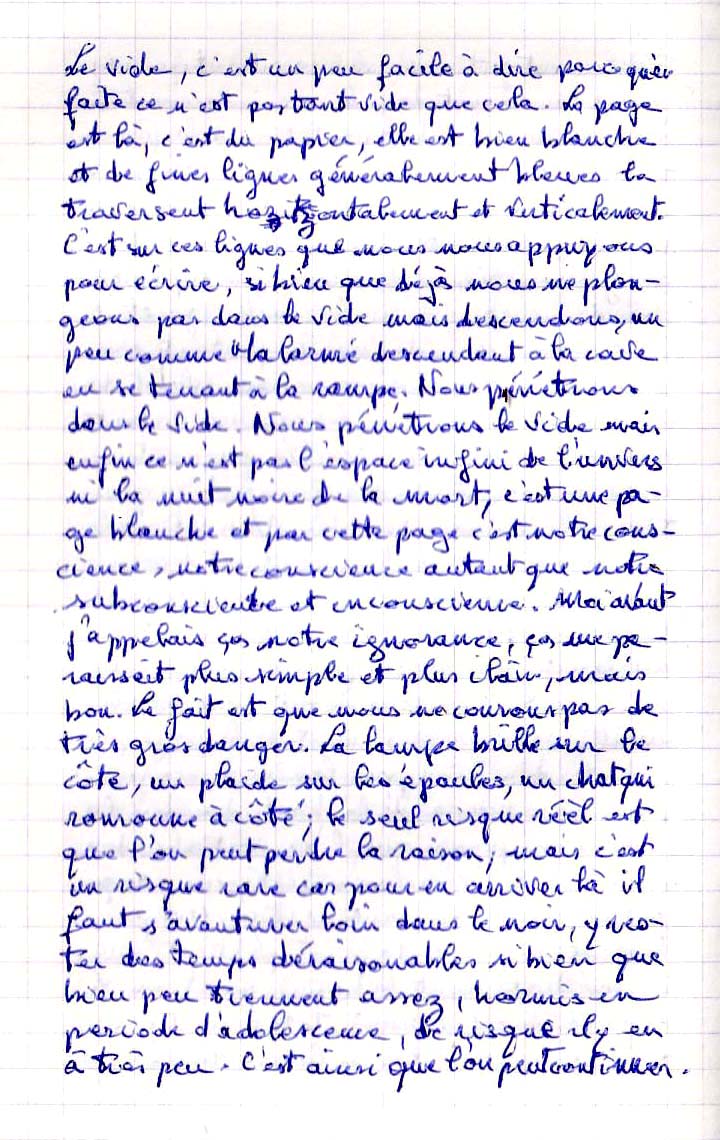 Le vide, c'est un peu facile à dire parce qu'en
faite ce n'est pas tant vide que cela. La page
est là, c'est du papier, elle est bien blanche
et de fines lignes généralement bleues la
traversent horizontalement et verticalement.
C'est sur ces lignes que nous nous appuyons
pour écrire, si bien que déjà nous ne plon-
geons pas dans le vide mais descendons, un
peu comme descendant à la cave
en se tenant à la rampe. Nous pénétrons
dans le vide. Nous pénétrons le vide mais
enfin ce n'est pas l'espace infini de l'univers
ni la nuit noire de la mort, c'est une pa-
ge blanche et par cette page c'est notre cons-
cience, notre conscience autant que notre
subconsciente et inconscience. Moi avant
j'appelais ças notre ignorance, ças me pa-
raissait plus simple et plus clair, mais
bon. Le fait est que nous ne courons pas de
très gros danger. La lampe brille sur le
côté, un plaide sur les épaules, un chat qui
ronronne à côté; le seul risque réèl est
que l'on peut perdre la raison, mais c'est
un risque rare car pour en arriver là il
faut s'avanturer loin dans le noir, y res-
ter des temps déraisonables si bien que
bien peu tiennent assez, hormis en
periode d'adolescence, de risque il y en
à très peu. C'est ainsi que l'on peut continuer.